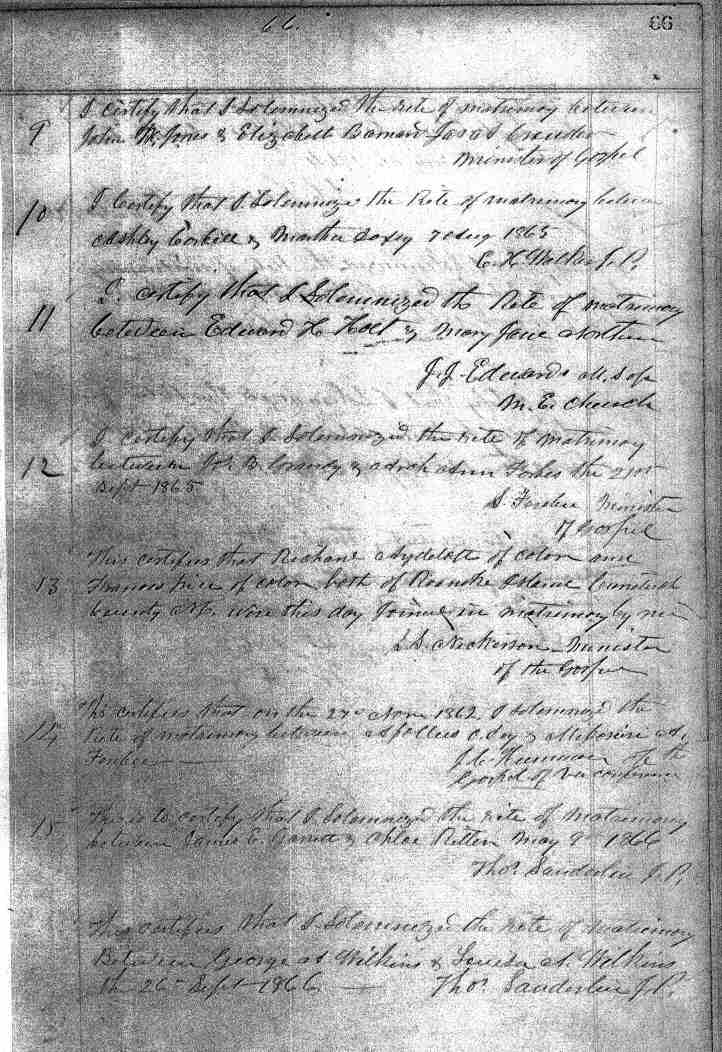 66. 66
I certify that I Solemnized the rite of matrimony between
9 John W. Jones & Elizabeth Barnard Jas A Crowder
Minister of Gospel
10 I Certify that I Solemnize the Rite of matrimony between
Ashby & Martha Doxey 7 Aug 1865
E. H. Walker J. P.
I. certify that I Solemnized the Rite of matrimony
11 between Edward H. Holt & Mary Jane Northern
J. J. Edwards
M. E. Church
I certify that I Solemnized the rite of matrimony
12 between B. & Ann Forbes the 21st
Sept 1865
S. Minister
of Gospel
This certifies that Richard Aydelott of color and
13 Frances of color both of Roanoke Island Currituck
County NC. were this day Joined in matrimony by me
Nickerson Minister
of the Gospel
This certifies that on the 27th 1862, I solemnized the
14 Rite of matrimony between &
Forbes —
Gospel of Va conference
15 This is to certify that I Solemnized the rite of Matrimony
between James E. Barrett & Chloe May 9th 1866
Thos. Sanderlin J. P.
This certifies that I Solemnized the rite of matrimony
Between George Wilkins & Louisa A. Wilkins
the 26th Sept 1866 — Thos. Sanderlin J. P.